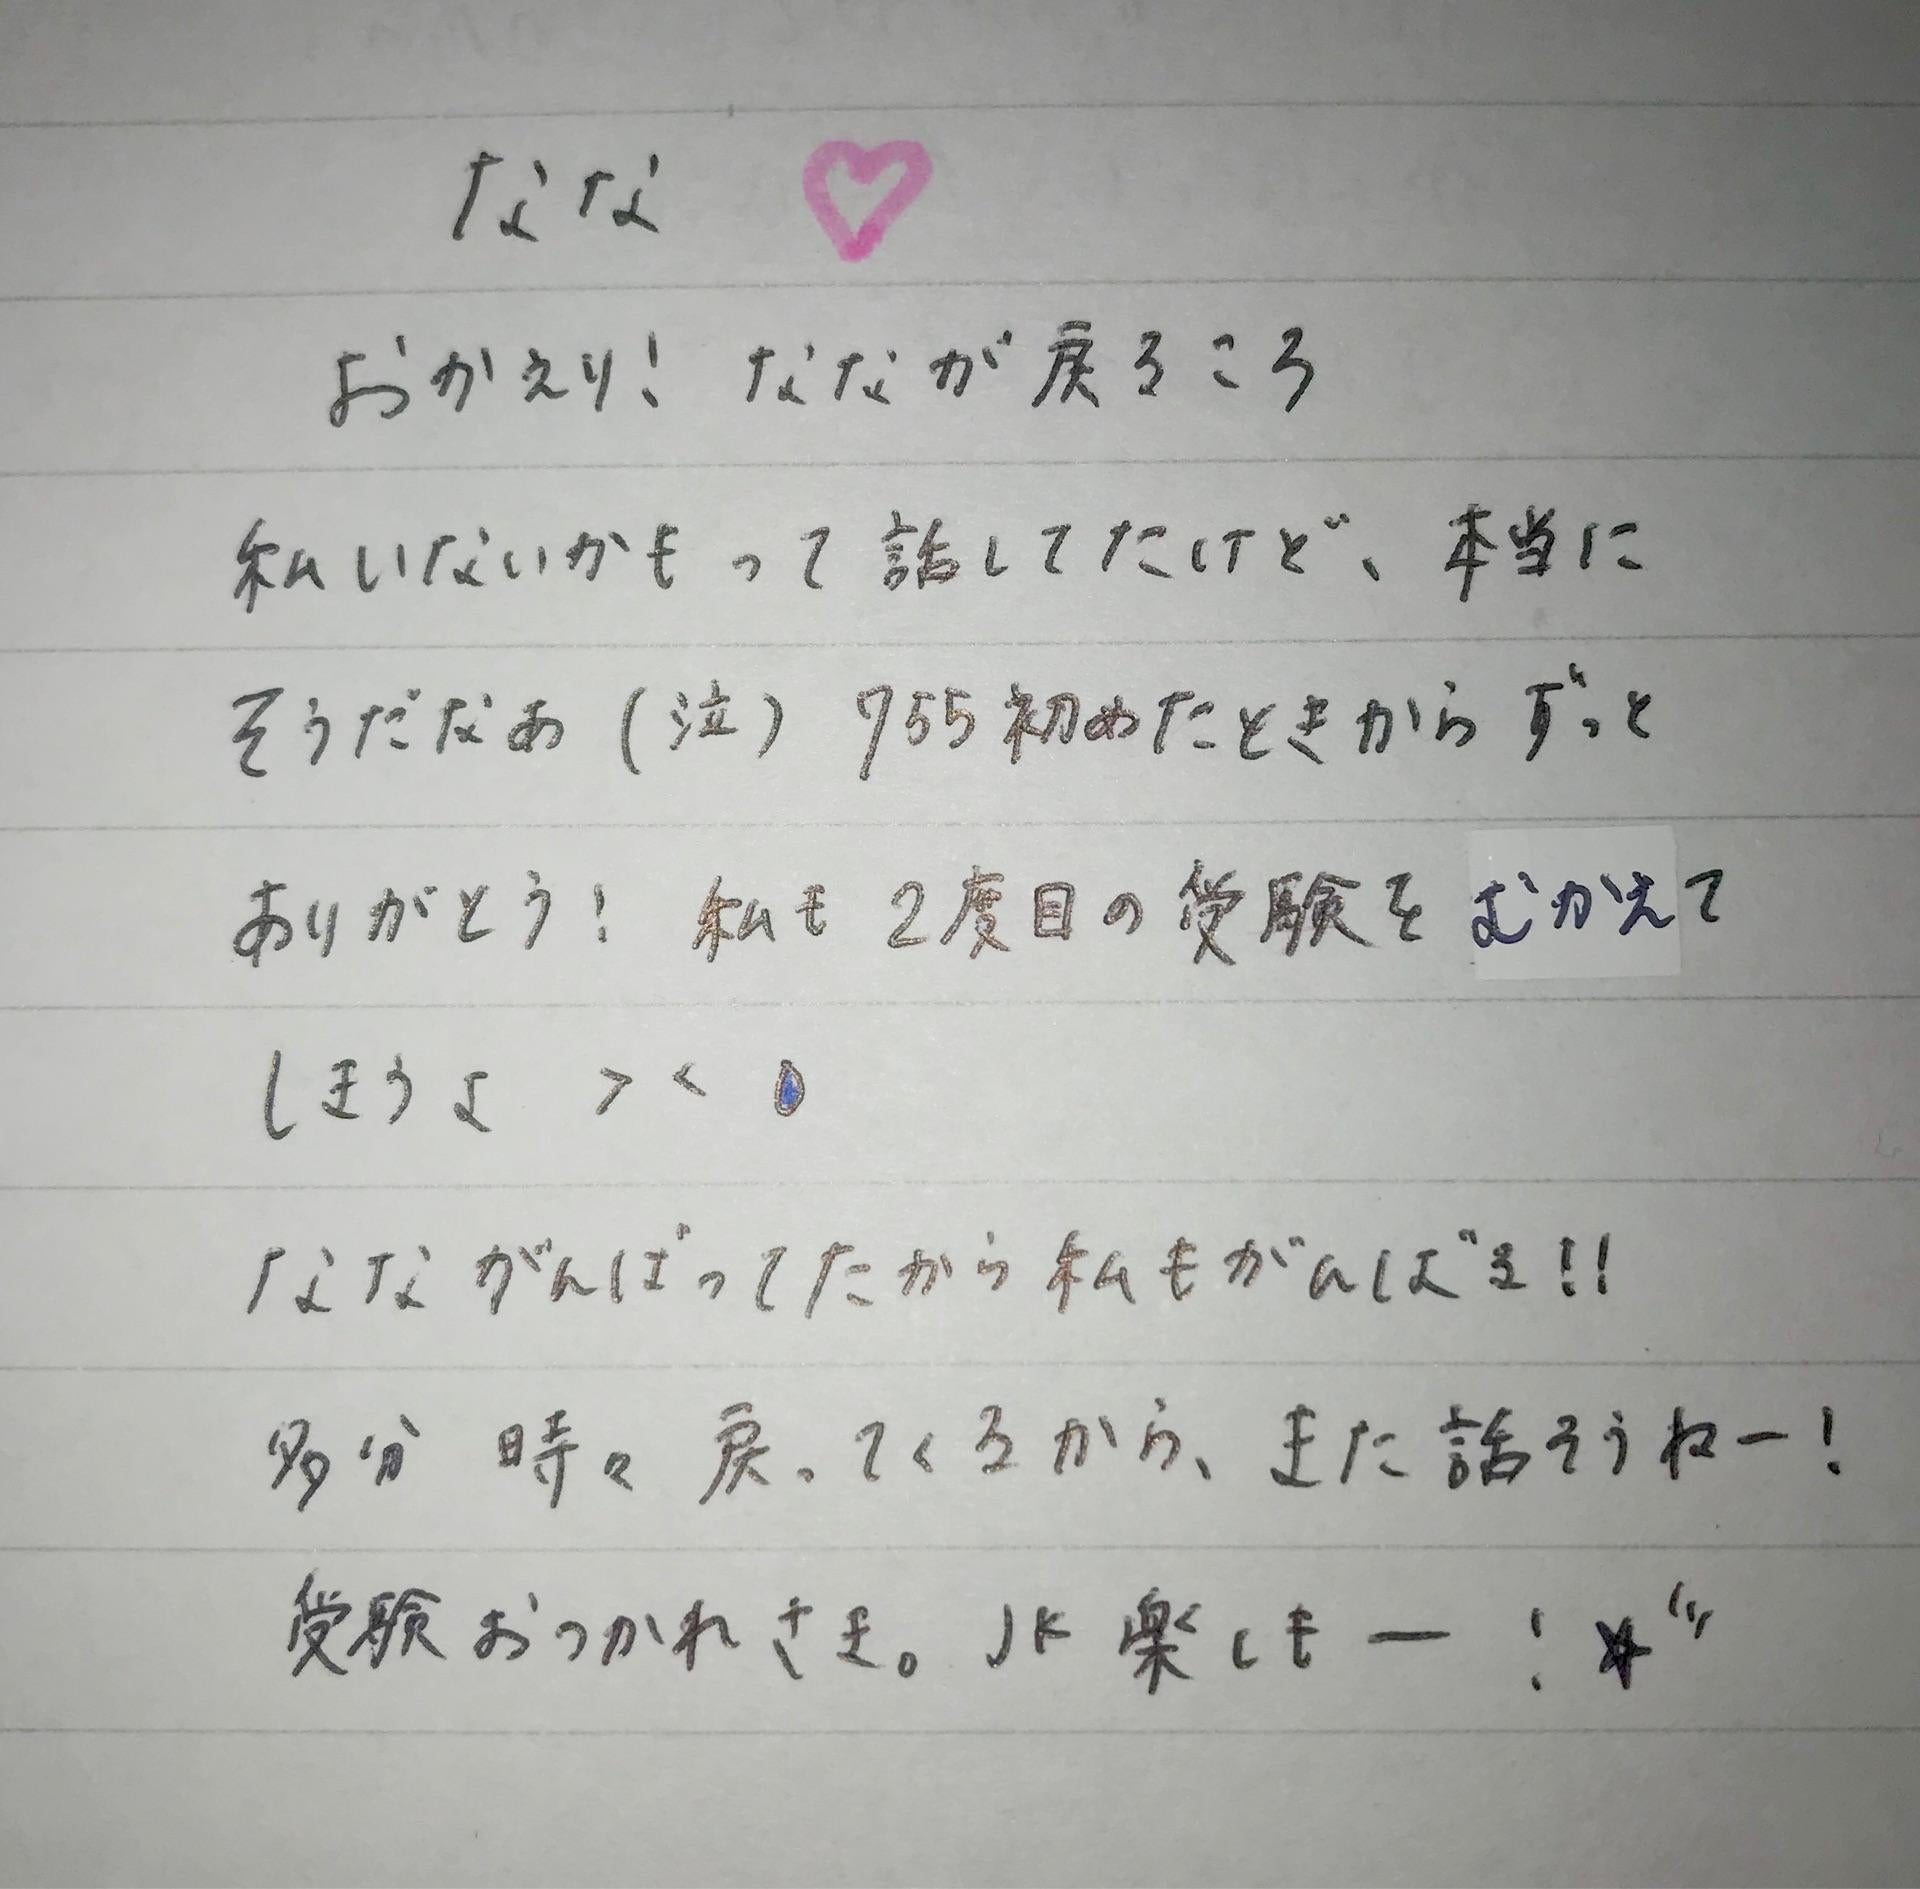 なな ♡
おかえり! ななが戻るころ
私いないかもって話してたけど、本当に
そうだなあ(泣) 755初めたときからずっと
ありがとう! 私も2度目の受験をむかえて
しまうよ > <
なながんばってたから私もがんばる!!
多分 時々 戻ってくるから、また話そうねー!
受験おつかれさま。JK 楽しもー!☆